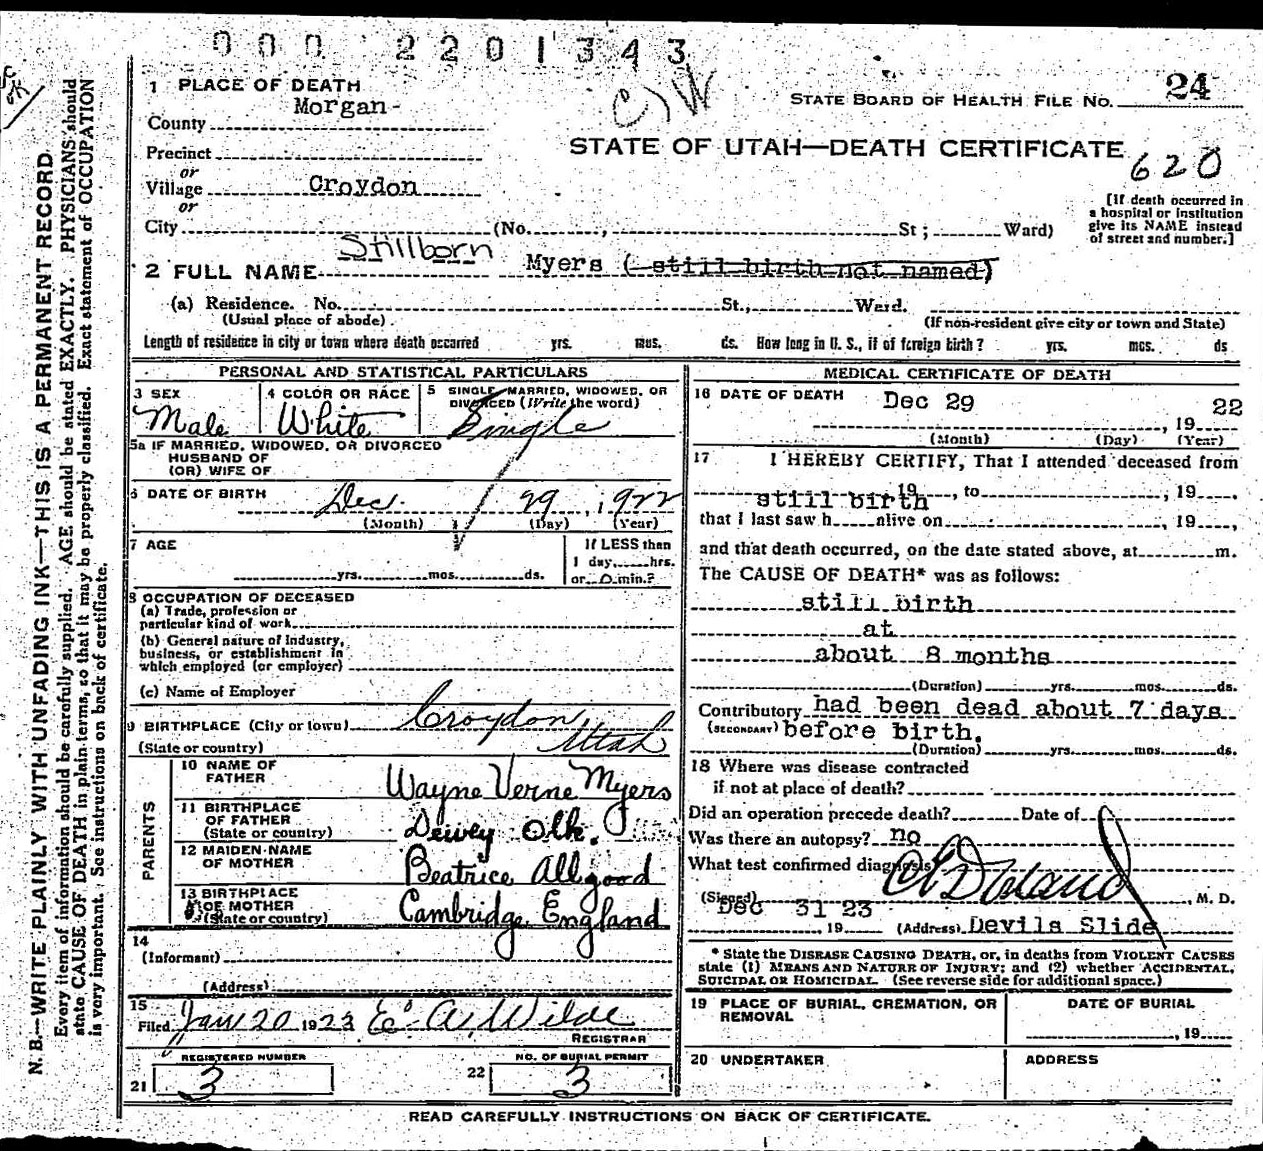 000 2201343
1 PLACE OF DEATH
STATE BOARD OF HEALTH FILE NO. 24
County Morgan-
STATE OF UTAH—DEATH CERTIFICATE
620
Precinct
or
Village Croydon
or
City (No. , St; Ward)
[If death occurred in
a hospital or institution
give its NAME instead
of street and number.]
2 FULL NAME Stillborn Myers (still birth not named)
(a) Residence. No. St., Ward.
(Usual place of abode)
(If non-resident give city or town and State)
Length of residence in city or town where death occurred yrs. mos. ds. How long in U. S., if of foreign birth? yrs. mos. ds
PERSONAL AND STATISTICAL PARTICULARS
3 SEX
Male
4 COLOR OR RACE
White
5 SINGLE, MARRIED, WIDOWED, OR
DIVORCED (Write the word)
Single
5a IF MARRIED, WIDOWED, OR DIVORCED
HUSBAND OF
(OR) WIFE OF
6 DATE OF BIRTH Dec. 29, 1922
(Month) (Day) (Year)
7 AGE
yrs. mos. ds.
If LESS than
1 day, hrs.
or 0 min.?
8 OCCUPATION OF DECEASED
(a) Trade, profession or
particular kind of work
(b) General nature of industry,
business, or establishment in
which employed (or employer)
(c) Name of Employer
9 BIRTHPLACE (City or town) Croydon,
(State or country) Utah
PARENTS
10 NAME OF
FATHER Wayne Verne Myers
11 BIRTHPLACE
OF FATHER
(State or country) Dewey Olk.
12 MAIDEN NAME
OF MOTHER Beatrice Allgood
13 BIRTHPLACE
OF MOTHER
(State or country) Cambridge England
14
(Informant)
(Address)
15
Filed Jan 20 1923 E. A. Wilde
REGISTRAR
REGISTERED NUMBER
21 3
NO. OF BURIAL PERMIT
22 3
MEDICAL CERTIFICATE OF DEATH
16 DATE OF DEATH Dec 29 , 1922
(Month) (Day) (Year)
17 I HEREBY CERTIFY, That I attended deceased from
still birth 19 , to , 19 ,
that I last saw h alive on , 19 ,
and that death occurred, on the date stated above, at m.
The CAUSE OF DEATH* was as follows:
still birth
at
about 8 months
(Duration) yrs. mos. ds.
Contributory had been dead about 7 days
(SECONDARY) before birth.
(Duration) yrs. mos. ds.
18 Where was disease contracted
if not at place of death?
Did an operation precede death? Date of
Was there an autopsy? no
What test confirmed diagnosis?
(Signed) , M. D.
Dec 31 23
, 19 (Address) Devils Slide
* State the DISEASE CAUSING DEATH, or, in deaths from VIOLENT CAUSES
state (1) MEANS AND NATURE OF INJURY; and (2) whether ACCIDENTAL,
SUICIDAL OR HOMICIDAL. (See reverse side for additional space.)
19 PLACE OF BURIAL, CREMATION, OR
REMOVAL
DATE OF BURIAL
, 19
20 UNDERTAKER
ADDRESS
READ CAREFULLY INSTRUCTIONS ON BACK OF CERTIFICATE.
N. B.—WRITE PLAINLY WITH UNFADING INK—THIS IS A PERMANENT RECORD
Every item of information should be carefully supplied. AGE should be stated EXACTLY. PHYSICIANS should
state CAUSE OF DEATH in plain terms, so that it may be properly classified. Exact statement of OCCUPATION
is very important. See instructions on back of certificate.